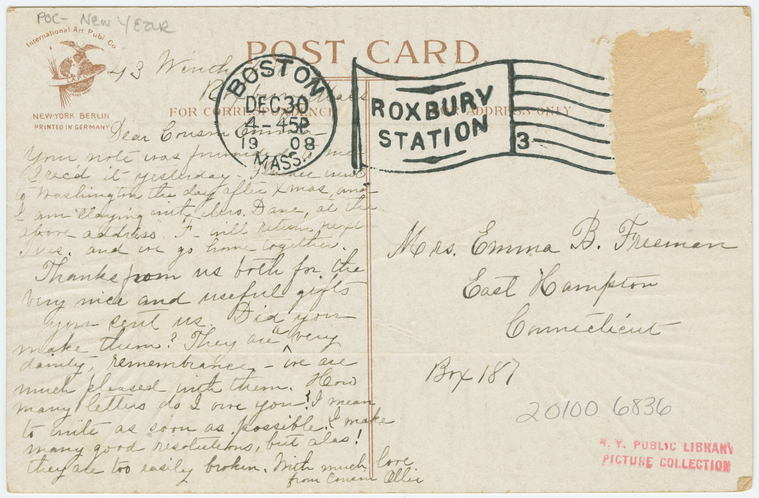 POC- New Year
International Art Publ. Co.
NEW-YORK BERLIN
PRINTED IN GERMANY
POST CARD.
FOR CORRESPONDENCE
FOR ADDRESS ONLY
BOSTON
DEC 30
4-45P
1908
MASS.
ROXBURY
STATION
3
43
Mass
Dear Cousin Emma
Your note was
I rec'd it yesterday.
to Washington the day after Xmas, and
I am staying with Mrs. Dane, at the
above address. F- will return next
Tues. and we go home together.
Thanks from us both for the
very nice and useful gifts
you sent us. Did you
make them? They are a very
dainty remembrance - we are
much pleased with them. How
many letters do I owe you? I mean
to write as soon as possible. I make
many good resolutions, but alas!
they are too easily broken. With much love.
from Cousin Ollie
Mrs. Emma B. Freeman
East Hampton
Connecticut
Box 187
20100 6836
N. Y. PUBLIC LIBRARY
PICTURE COLLECTION